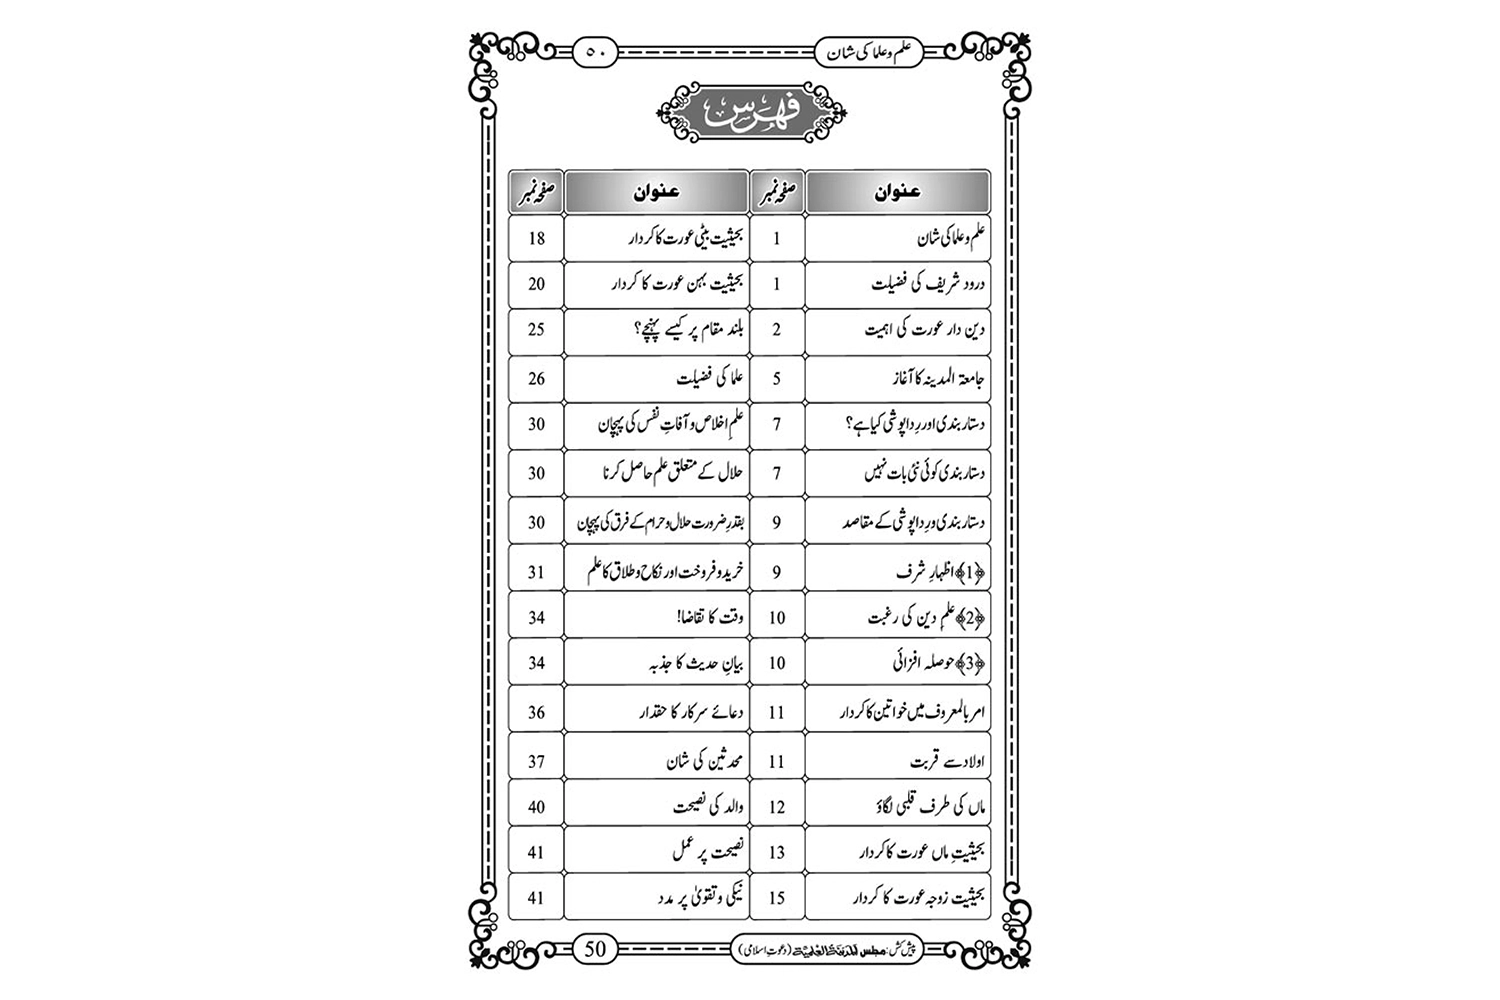 علم و علما کی شان
۵۰
فہرس
عنوان صفحہ نمبر عنوان صفحہ نمبر
علم و علما کی شان 1 بحیثیت بیٹی عورت کا کردار 18
درود شریف کی فضیلت 1 بحیثیت بہن عورت کا کردار 20
دین دار عورت کی اہمیت 2 بلند مقام پر کیسے پہنچے؟ 25
جامعۃ المدینہ کا آغاز 5 علما کی فضیلت 26
دستار بندی اور رِدا پوشی کیا ہے؟ 7 علمِ اخلاص و آفاتِ نفس کی پہچان 30
دستار بندی کوئی نئی بات نہیں 7 حلال کے متعلق علم حاصل کرنا 30
دستار بندی و رِدا پوشی کے مقاصد 9 بقدرِ ضرورت حلال و حرام کے فرق کی پہچان 30
﴿1﴾ اظہارِ شرف 9 خرید و فروخت اور نکاح و طلاق کا علم 31
﴿2﴾ علمِ دین کی رغبت 10 وقت کا تقاضا! 34
﴿3﴾ حوصلہ افزائی 10 بیانِ حدیث کا جذبہ 34
امر بالمعروف میں خواتین کا کردار 11 دعائے سرکار کا حقدار 36
اولاد سے قربت 11 محدثین کی شان 37
ماں کی طرف قلبی لگاؤ 12 والد کی نصیحت 40
بحیثیتِ ماں عورت کا کردار 13 نصیحت پر عمل 41
بحیثیت زوجہ عورت کا کردار 15 نیکی و تقویٰ پر مدد 41
پیش کش: مجلس المدینۃ العلمیۃ (دعوتِ اسلامی)
50